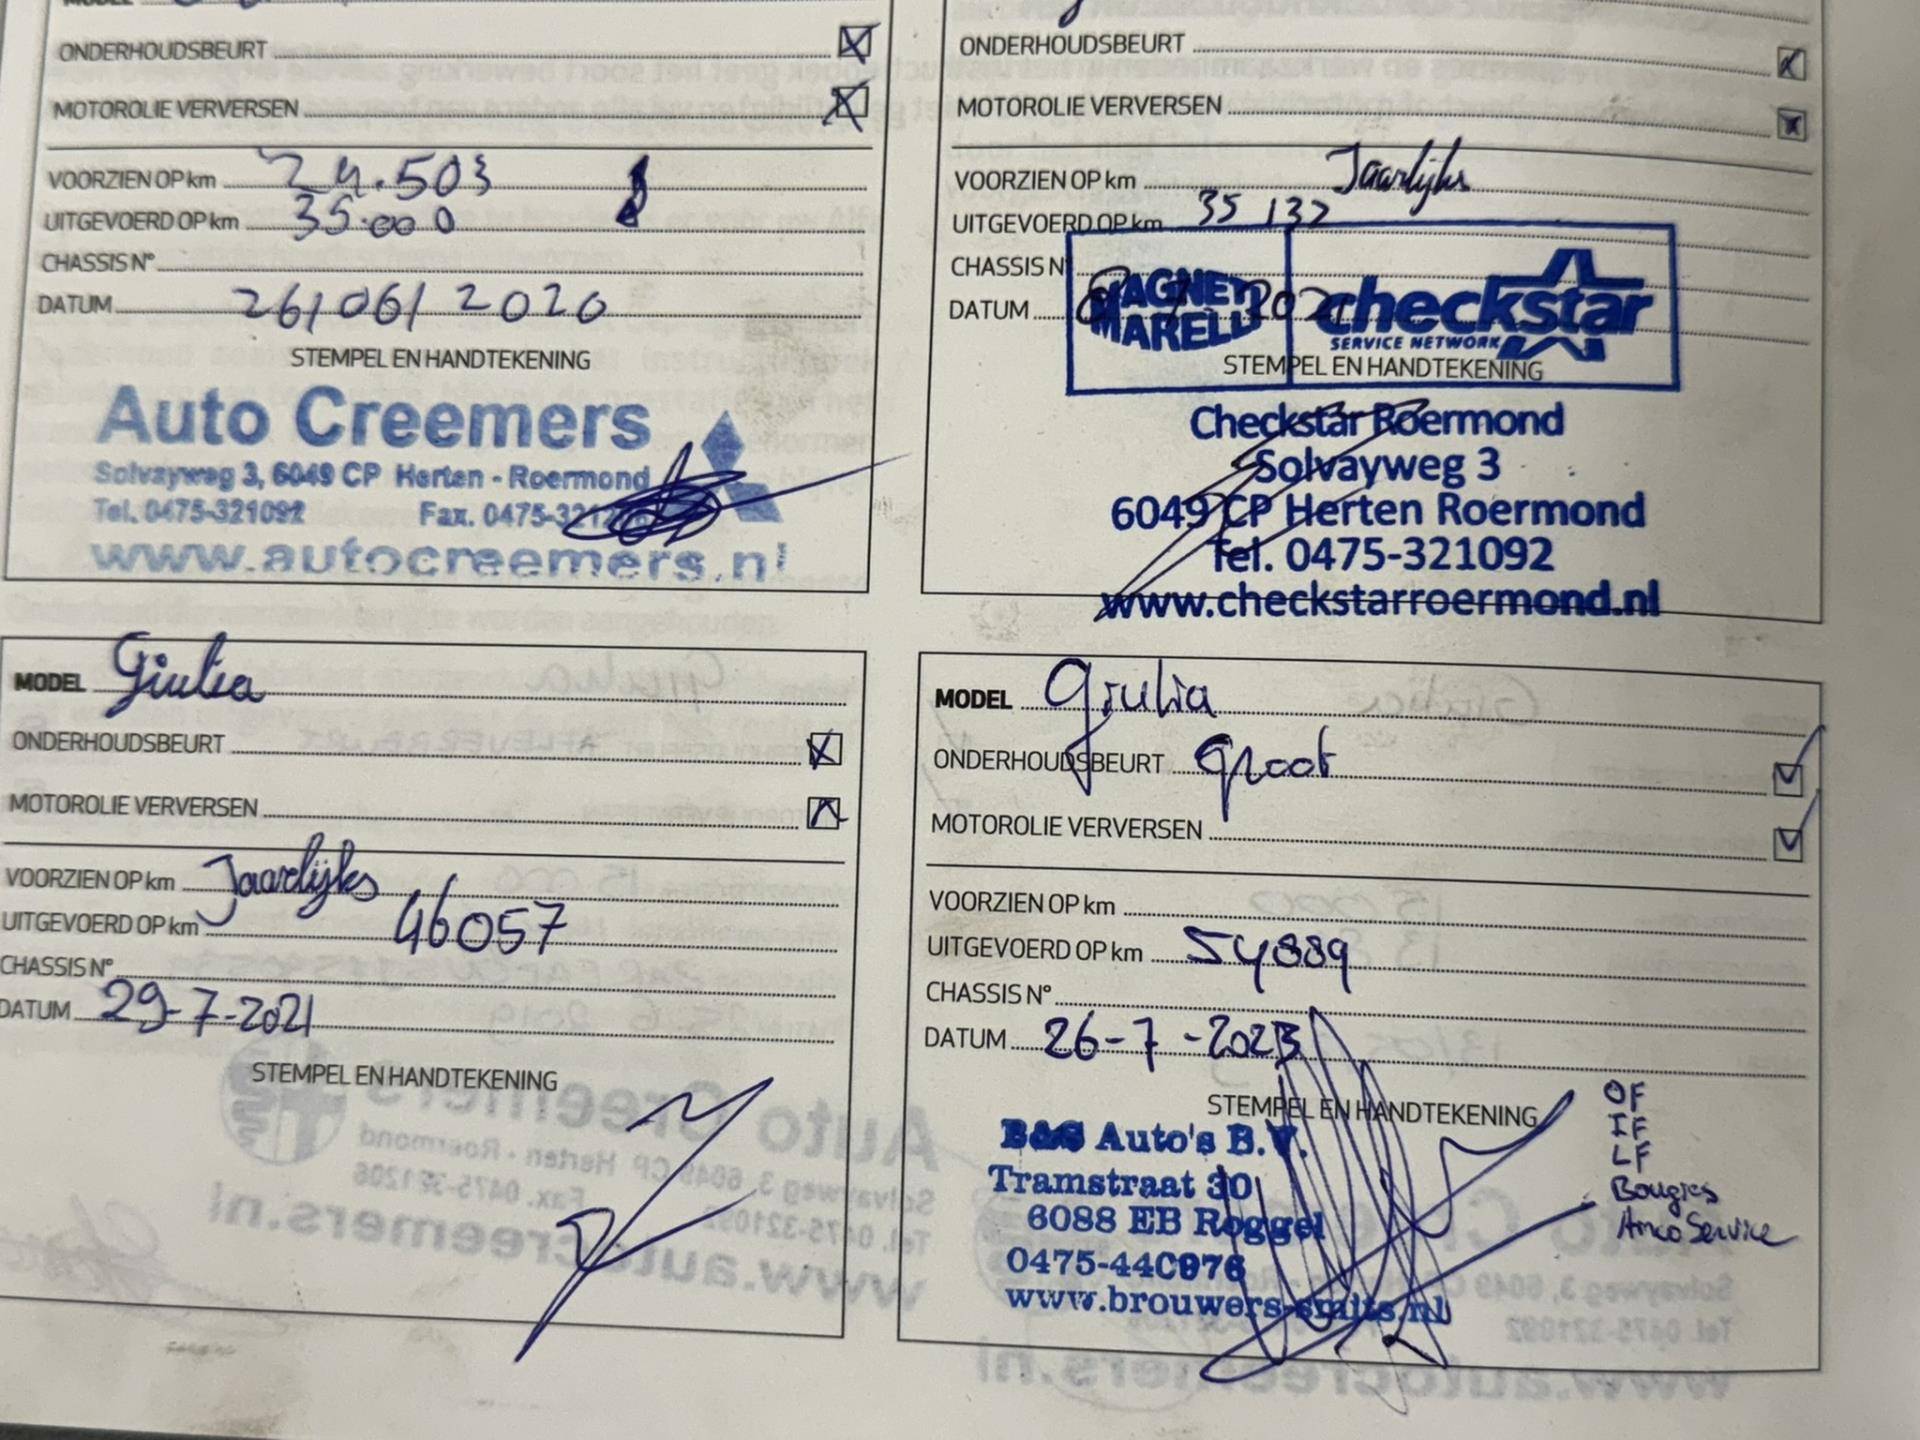 ONDERHOUDSBEURT
MOTOROLIE VERVERSEN
VOORZIEN OP km 24.503
UITGEVOERD OP km 35.000
CHASSIS N°
DATUM 26/06/2020
STEMPEL EN HANDTEKENING
Auto Creemers
Solvayweg 3, 6049 CP Herten - Roermond
Tel. 0475-321092 Fax. 0475-
www.autocreemers.nl
ONDERHOUDSBEURT
MOTOROLIE VERVERSEN
VOORZIEN OP km Jaarlijks
UITGEVOERD OP km 35 132
CHASSIS N°
DATUM
MAGNETI MARELLI
checkstar
SERVICE NETWORK
STEMPEL EN HANDTEKENING
Checkstar Roermond
Solvayweg 3
6049 CP Herten Roermond
Tel. 0475-321092
www.checkstarroermond.nl
MODEL Giulia
ONDERHOUDSBEURT
MOTOROLIE VERVERSEN
VOORZIEN OP km Jaarlijks
UITGEVOERD OP km 46057
CHASSIS N°
DATUM 29-7-2021
STEMPEL EN HANDTEKENING
MODEL Giulia
ONDERHOUDSBEURT groot
MOTOROLIE VERVERSEN
VOORZIEN OP km
UITGEVOERD OP km 54889
CHASSIS N°
DATUM 26-7-2023
STEMPEL EN HANDTEKENING
B&S Auto's B.V.
Tramstraat 30
6088 EB Roggel
0475-440976
www.brouwers-smits.nl
OF
IF
LF
Bougies
Airco Service